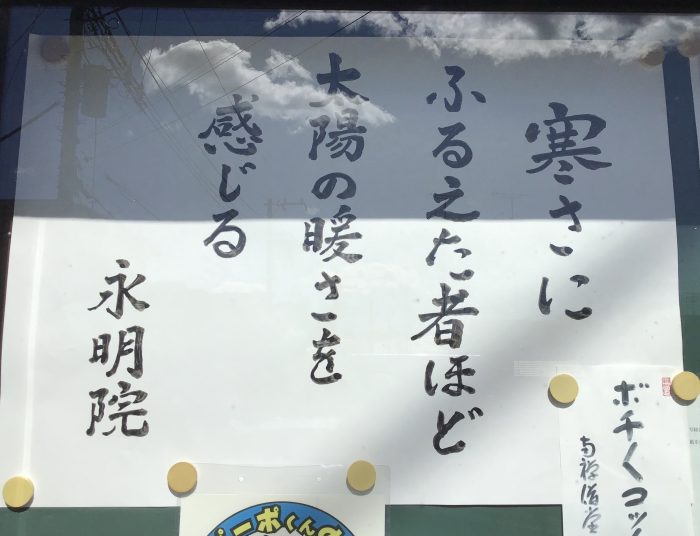 寒さに
ふるえた者ほど
太陽の暖さを
感じる
永明院
ボチ〱コッ
ピーポくん